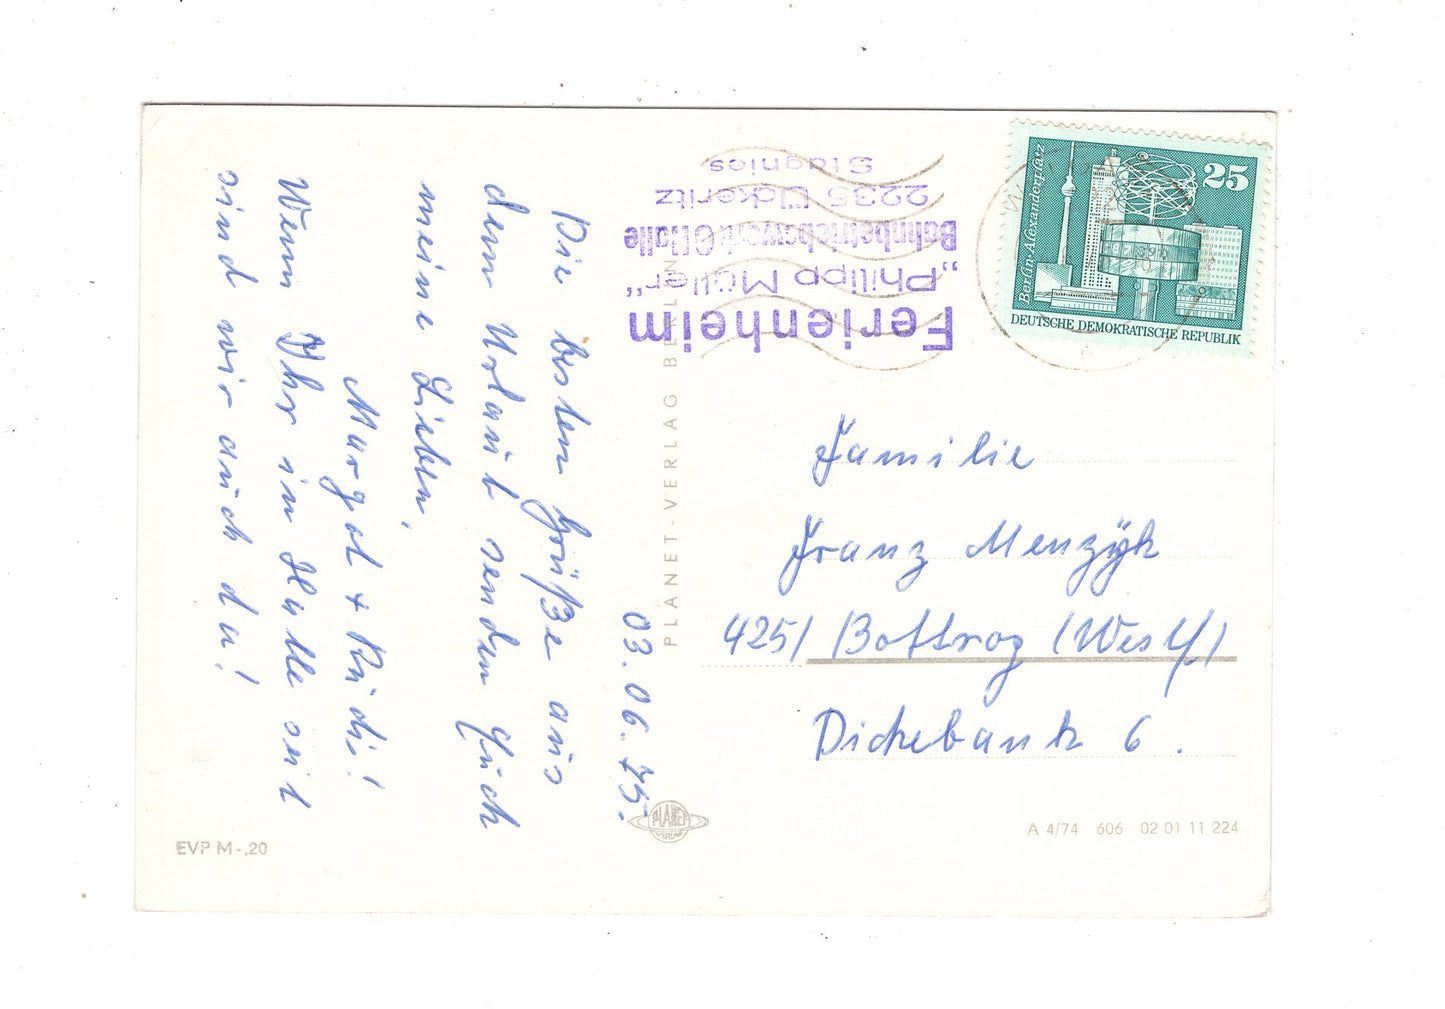 03.06.75.
Die besten Grüße aus
dem Urlaub senden Euch
meine Lieben,
Margot + Rudi!
Wenn Ihr in Halle seit
sind wir auch da!
Ferienheim
„Philipp Müller“
Bahnbetriebswerk G Halle
2235 Ückeritz
Stagnies
25
Berlin-Alexanderplatz
DEUTSCHE DEMOKRATISCHE REPUBLIK
Familie
Franz Menzÿk
425/ Bottrop (Westf)
Dickebank 6.
PLANET-VERLAG BERLIN
PLANET
VERLAG
EVP M -,20
A 4/74 606 02 01 11 224